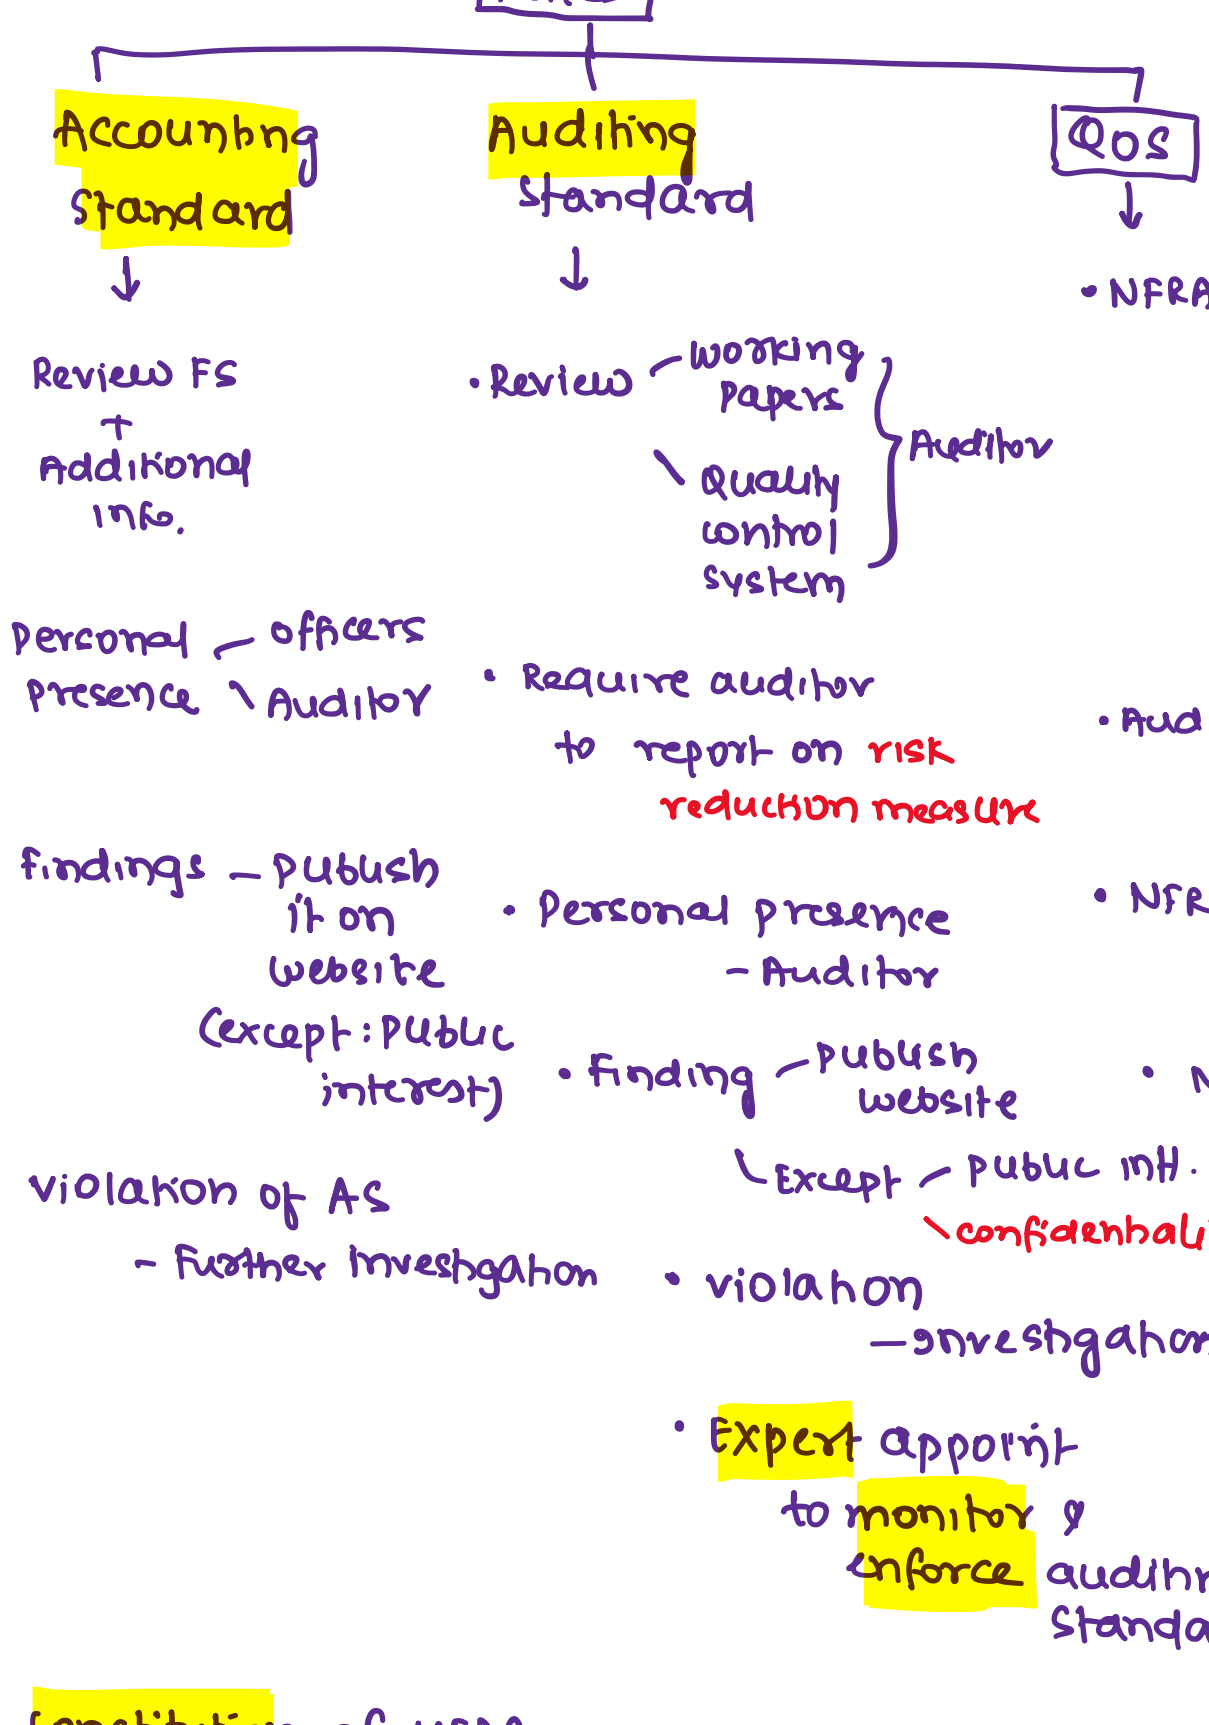 Accounting
Standard
Review FS
+
Additional
info.
Personal
presence
officers
Auditor
findings - Publish
it on
website
(except: Public
interest)
violation of AS
- Further investigation
Auditing
Standard
• Review
working
papers
Quality
control
system
Auditor
• Require auditor
to report on risk
reduction measure
• Personal presence
- Auditor
• finding
publish
website
Except
public int.
confidentiali
• violation
- Investigation
• Expert appoint
to monitor &
enforce auditin
Standa
QOS
• NFRA
• Aud
• NFR
• N